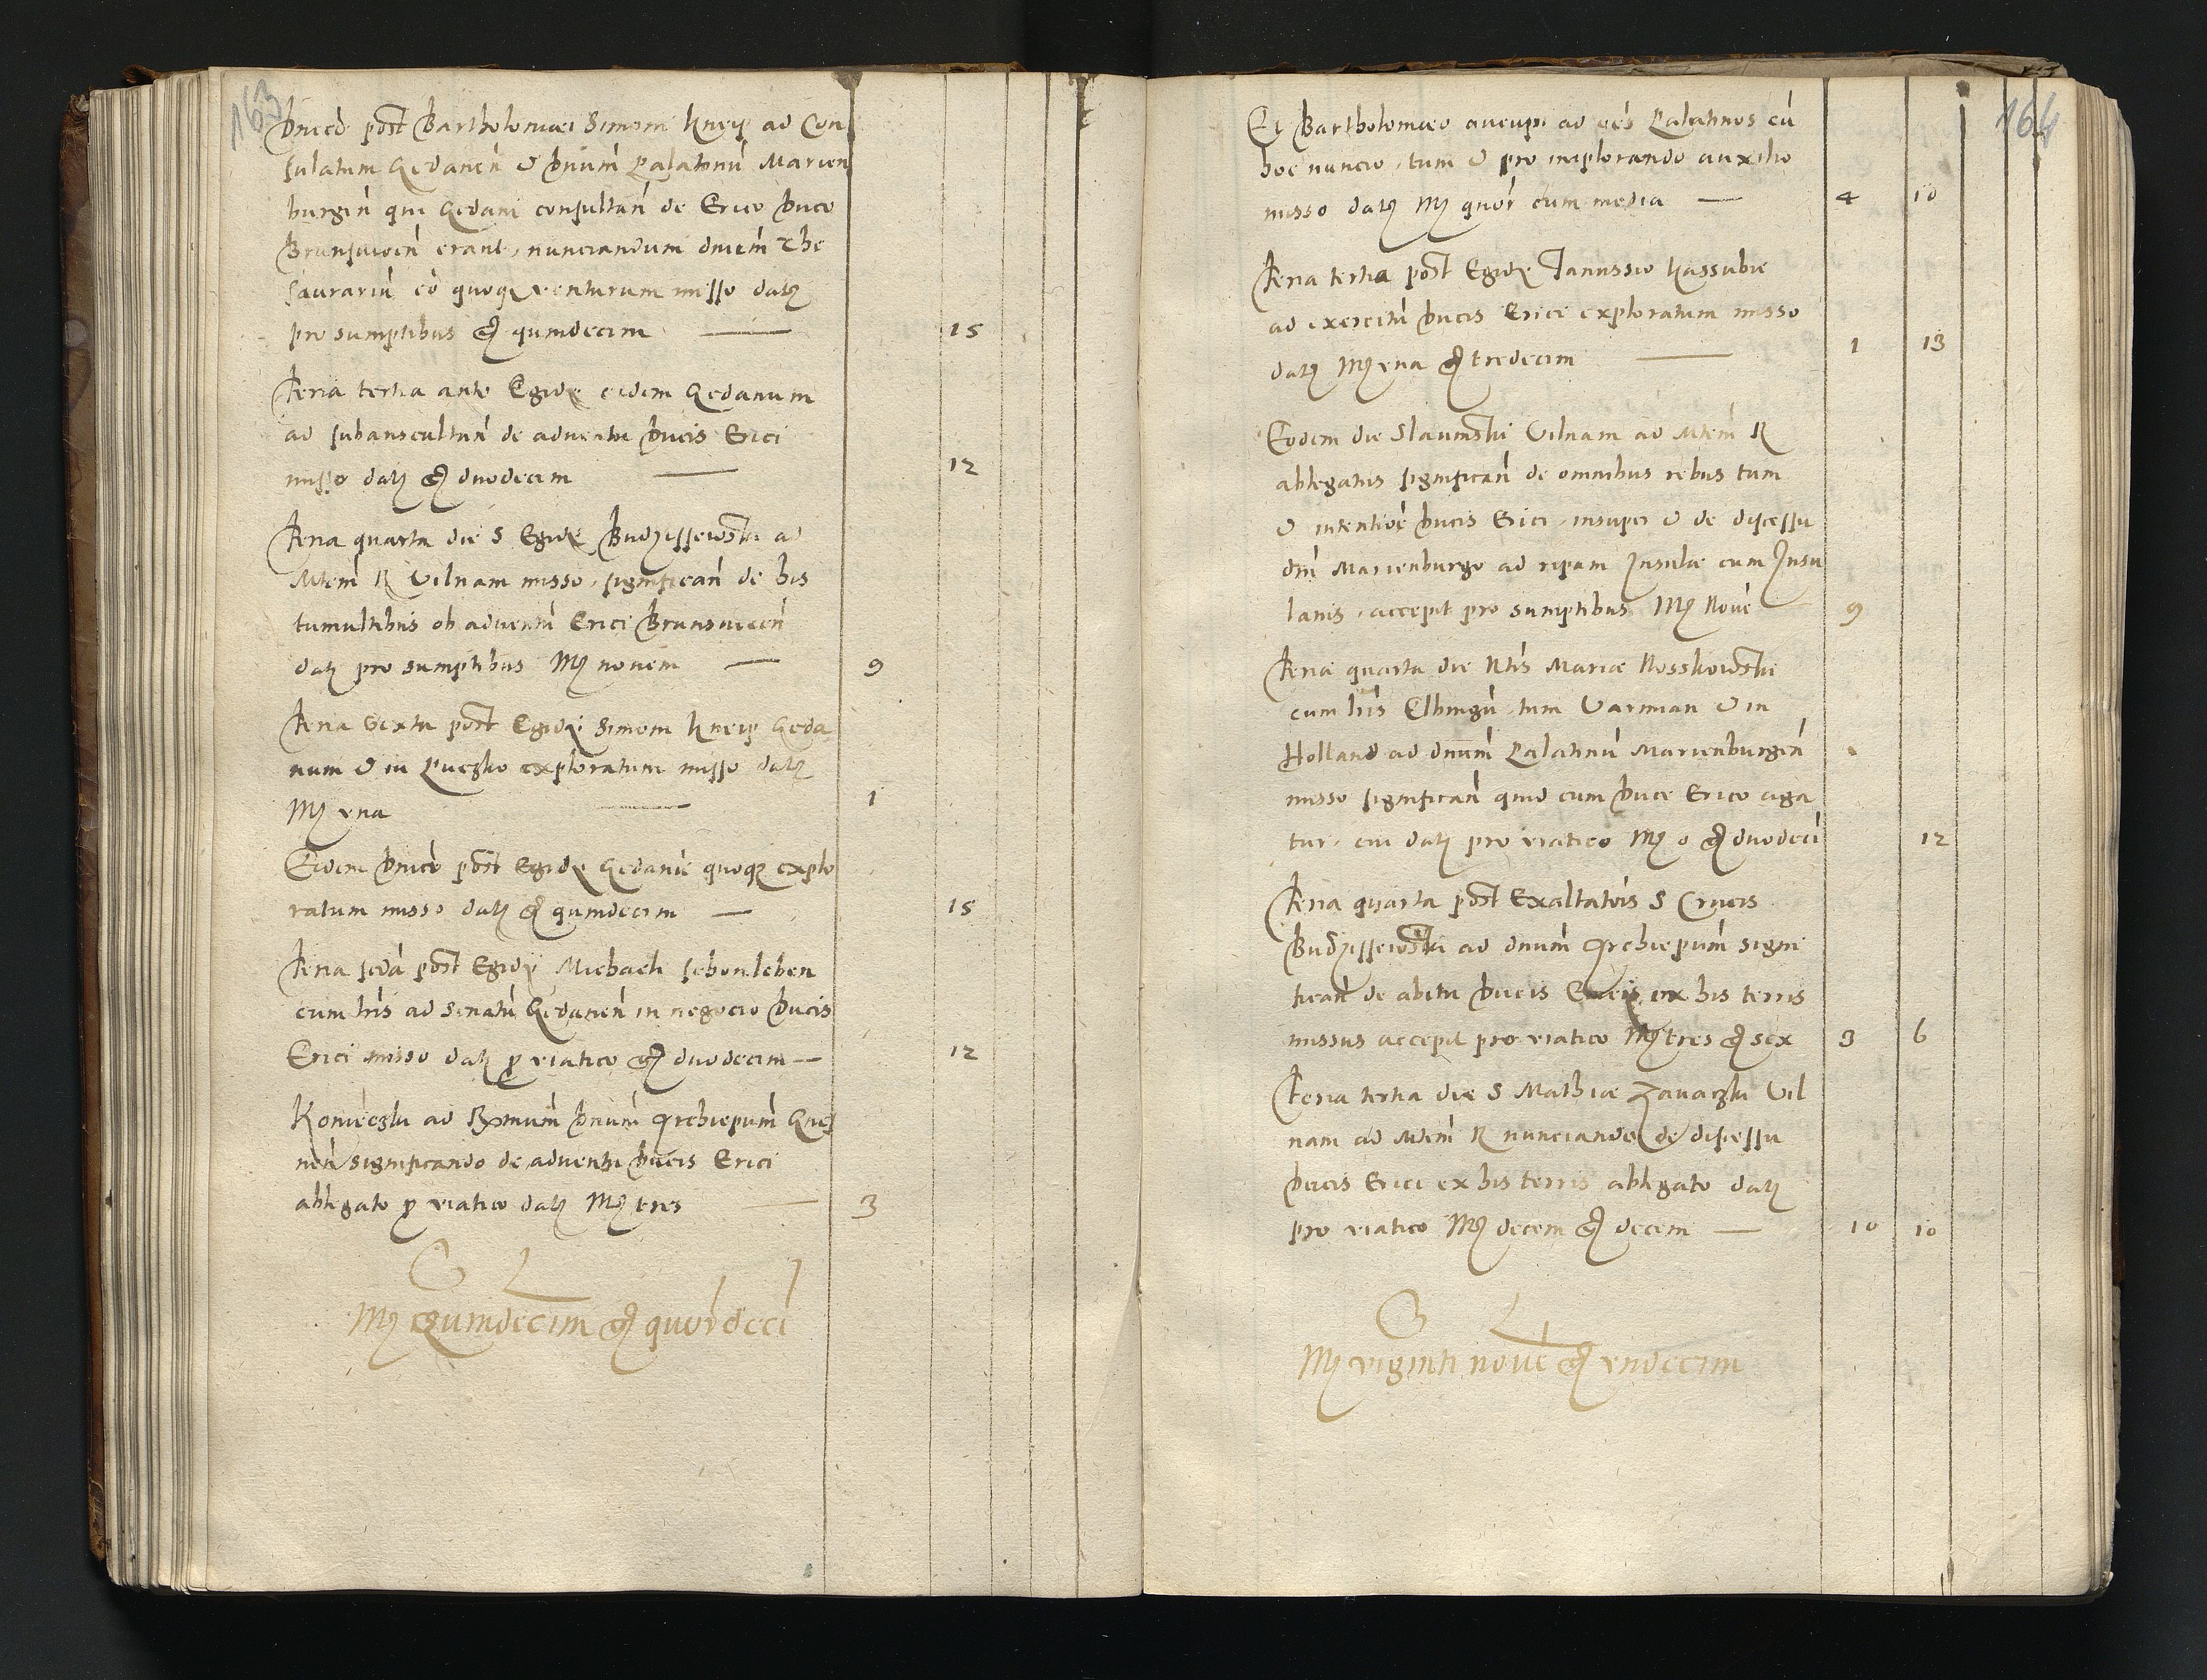 163
Dnico post Bartholomei Simoni Kneip ad Con
sulatum Gedanen̄ & Dnum̄ Palatinū Marien
burgen̄ qui Gedani consultan̄ de Erico Duce
Brunsuicen̄ erant, nunciandum dniem̄ The
saurariū eo quoq3 venturum misso dat3
pro sumptibus gr quindecim — 15
Feria tertia ante Egidii eidem Gedanum
ad subauscultan̄ de adventu Ducis Erici
misso dat3 gr duodecim — 12
Feria quarta die S Egidii Budzissewski ad
Mtem̄ R Vilnam misso, significan̄ de his
tumultibus ob adventū Erici Brunsuicen̄
dat3 pro sumptibus Mr novem — 9
Feria sexta post Egidii Simoni Kneip Geda
num & in Puczko exploratum misso dat3
Mr vna — 1
Eidem Dnico post Egidii Gedanū quoq3 explo
ratum misso dat3 gr quindecim — 15
Feria scda post Egidii Michaeli schonleben
cum lris ad senatū Gedanen̄ in negocio Ducis
Erici misso dat3 p viatico gr duodecim — 12
Konieczki ad Rxmum̄ Dnum̄ Archiepum̄ Gnez
nen̄ significando de adventu Ducis Erici
ablegato p viatico dat3 Mr tres — 3
Mr Quindecim gr quordeci
164
Et Bartholomeo aucupi ad oēs Palatinos cū
hoc nuncio, tum & pro implorando auxilio
misso dat3 Mr quor cum media — 4 10
Feria tertia post Egidii Janussio Kassubie
ad exercitū Ducis Erici exploratum misso
dat3 Mr vna gr tredecim — 1 13
Eodem die Slavinski Vilnam ad Mtem̄ R
ablegatus significan̄ de omnibus rebus tum
& intentiōe Ducis Erici, insuper & de discessu
dni Marienburgo ad ripam Insulae cum Insu
lanis, accepit pro sumptibus Mr Nove 9
Feria quarta die Ntis Mariae Nosskowski
cum lris Elbingū, tum Varmian & in
Holland ad dnum̄ Palatinū Marienburgen̄
misso significan̄ quid cum Duce Erico aga
tur, cui dat3 pro viatico Mr o gr duodeci 12
Feria quarta post Exaltatōis S Crucis
Budzissewski ad dnum̄ Archiepum̄ signi
fican̄ de abitu Ducis Erici ex his terris
missus accepit pro viatico Mr tres gr sex 3 6
Feria tertia die S Mathiae Zavaczki Vil
nam ad Mtem̄ R nunciando de discessu
Ducis Erici ex his terris ablegato dat3
pro viatico Mr decem gr decem — 10 10
Mr viginti nove gr vndecim